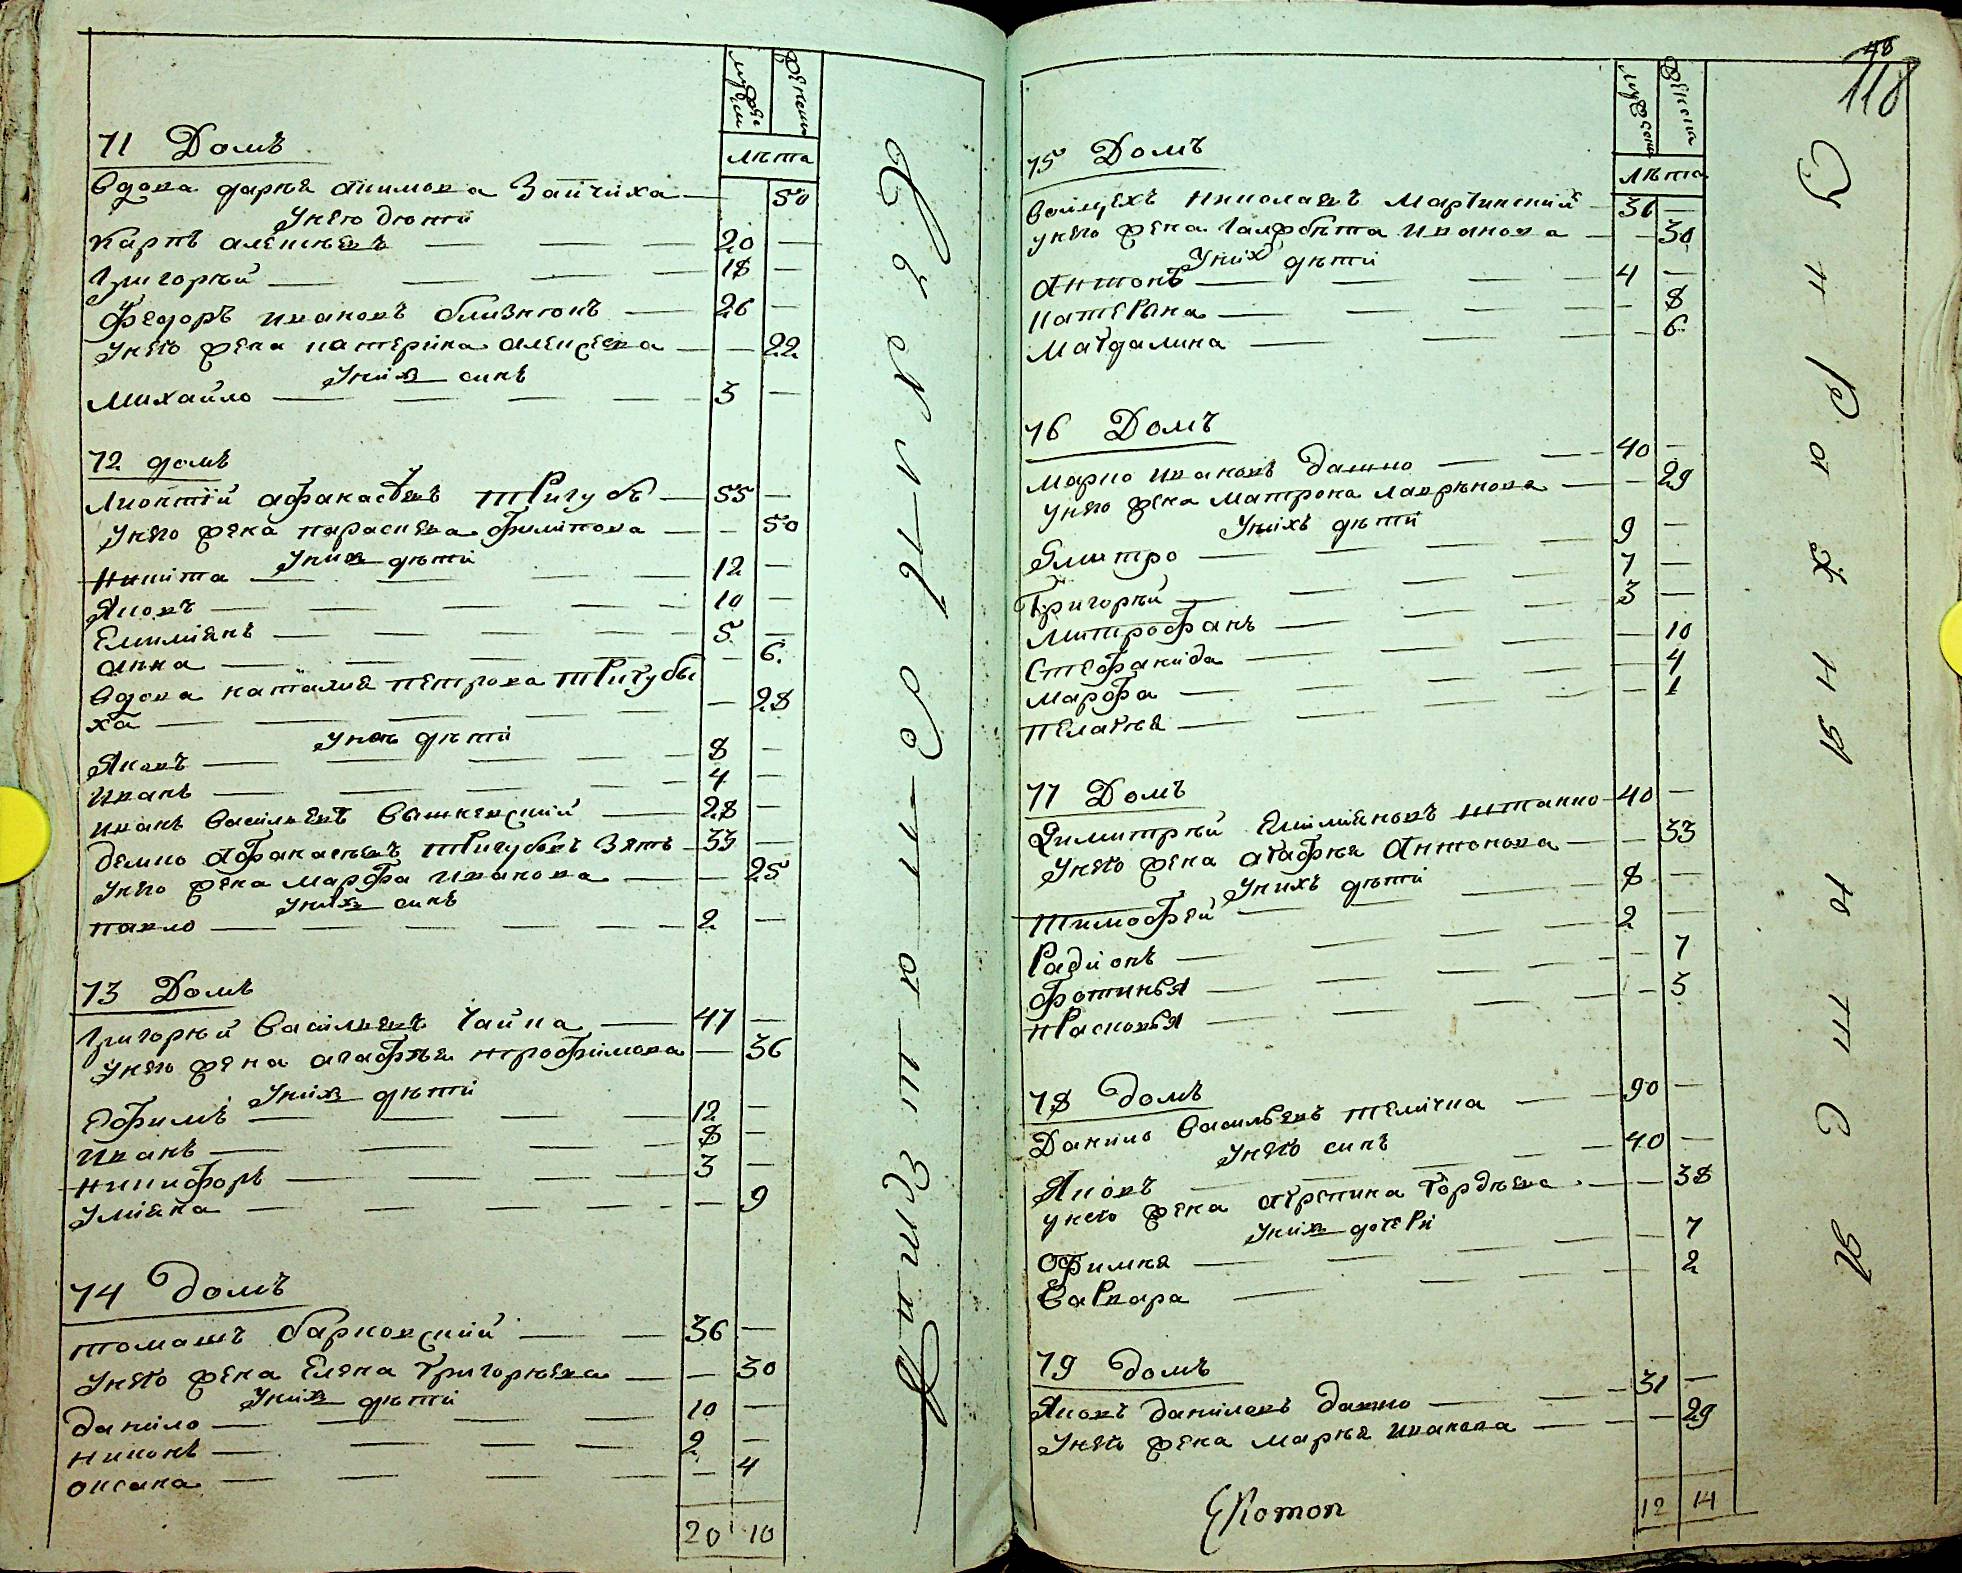 мужеска
женска
лѣта
71 Домъ
Вдова дарья акимова Зайчиха — 50
Унею дюти
Карпъ алексѣевъ — 20 —
Григорѣй — 18 —
Федоръ ивановъ близнюкъ — 26 —
Унего жена катерина алексѣева — — 22
Униⷯ синъ
Михайло — 3 —
72 домъ
Лионтій афанасіевъ тригубъ — 55 —
Унего жена параскева филипова — — 50
Униⷯ дѣти
Никита — 12 —
Яковъ — 10 —
Емиліянъ — 5 —
анна — — 6
Вдова наталия петрова тригубы
ха — — 28
Унеѣ дѣти
Яковъ — 8 —
Иванъ — 4 —
иванъ Василиевъ Вышневскій — 28 —
демко афанасѣевъ тригубовъ Зять — 33 —
Унего жена марфа иванова — — 25
Униⷯ синъ
павло — 2 —
73 Домъ
Григорѣй Василиевъ Чайка — 47 —
Унего жена агафѣя трофимова — — 36
Униⷯ дѣти
Ефимъ — 12 —
Иванъ — 8 —
Никифоръ — 3 —
Уліяна — — 9
74 домъ
томашъ барковскій — 36 —
Унего жена Елена григорѣева — — 30
Униⷯ дѣти
данило — 10 —
никонъ — 2 —
оксана — — 4
20 10
118
мужеска
женска
лѣта
75 Домъ
Войцехъ николаевъ мартинскій — 36 —
Унего жена галжбѣта иванова — — 30
Униⷯ дѣти
антонъ — 4 —
катерына — — 8
магдалина — — 6
76 Домъ
марко ивановъ дашко — 40 —
Унего жена матрона лаврѣнова — — 29
Унихъ дѣти
Дмитро — 9 —
Григорѣй — 7 —
митрофанъ — 3 —
Стефанида — — 10
марфа — — 4
пелагѣя — — 1
77 Домъ
Димитрѣй Емиліяновъ штанко — 40 —
Унего жена агафѣя антонова — — 33
Унихъ дѣти
Тимофей — 8 —
Радіонъ — 2 —
фотинья — — 7
прасковья — — 3
78 домъ
Данило васильевъ теличка — 90 —
Унего синъ
Яковъ — 40 —
Унего жена агрепина гордѣева — — 38
Униⷯ дочери
офимия — — 7
Варвара — — 2
79 домъ
Яковъ даниловъ дашко — 31 —
Унего жена марѣя иванова — — 29
12 14